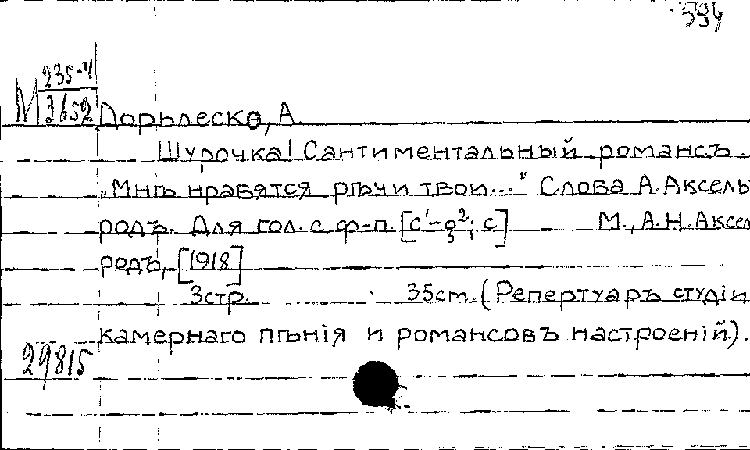 594
М 235-4
3652
Дорьлеско, А.
Шурочка! Сантиментальный романсъ.
„Мнѣ нравятся рѣчи твои...“ Слова А. Аксель-
родъ. Для гол. с ф-п. [c¹-g²; c] М., А. Н. Аксел
родъ, [1918]
3стр. 35cm. (Репертуаръ студіи
камернаго пѣнія и романсовъ настроеній).
29815